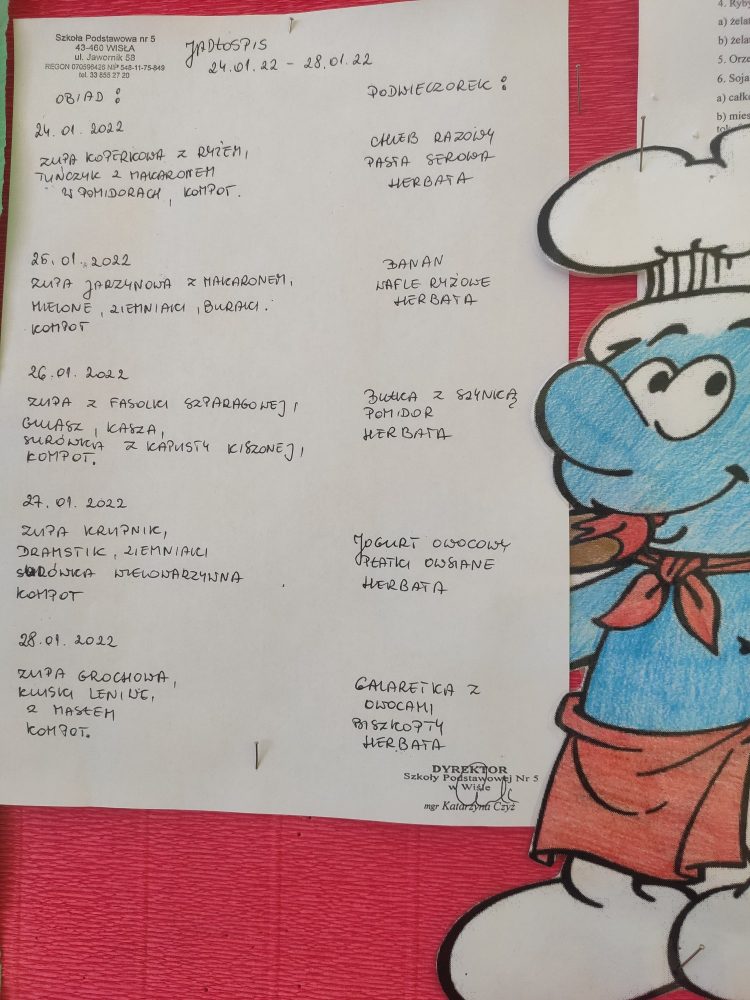 Szkoła Podstawowa nr 5
43-460 WISŁA
ul. Jawornik 58
REGON 070596426 NIP 548-11-75-849
tel. 33 858 27 20
JADŁOSPIS
24.01.22 - 28.01.22
OBIAD :
24.01.2022
ZUPA KOPERKOWA Z RYŻEM,
TUŃCZYK Z MAKARONEM
W POMIDORACH, KOMPOT.
25.01.2022
ZUPA JARZYNOWA Z MAKARONEM,
MIELONE, ZIEMNIAKI, BURAKI.
KOMPOT
26.01.2022
ZUPA Z FASOLKI SZPARAGOWEJ,
GULASZ, KASZA,
SURÓWKA Z KAPUSTY KISZONEJ,
KOMPOT.
27.01.2022
ZUPA KRUPNIK,
DRAMSTIK, ZIEMNIAKI
SURÓWKA WIELOWARZYWNA
KOMPOT
28.01.2022
ZUPA GROCHOWA,
KLUSKI LENIWE,
Z MASŁEM
KOMPOT.
PODWIECZOREK :
CHLEB RAZOWY
PASTA SEROWA
HERBATA
BANAN
WAFLE RYŻOWE
HERBATA
BUŁKA Z SZYNKĄ
POMIDOR
HERBATA
JOGURT OWOCOWY
PŁATKI OWSIANE
HERBATA
GALARETKA Z
OWOCAMI
BISZKOPTY
HERBATA
DYREKTOR
Szkoły Podstawowej Nr 5
w Wiśle
mgr Katarzyna Czyż
4. Ryby
a) żela
b) żela
5. Orze
6. Soja
a) całk
b) mies